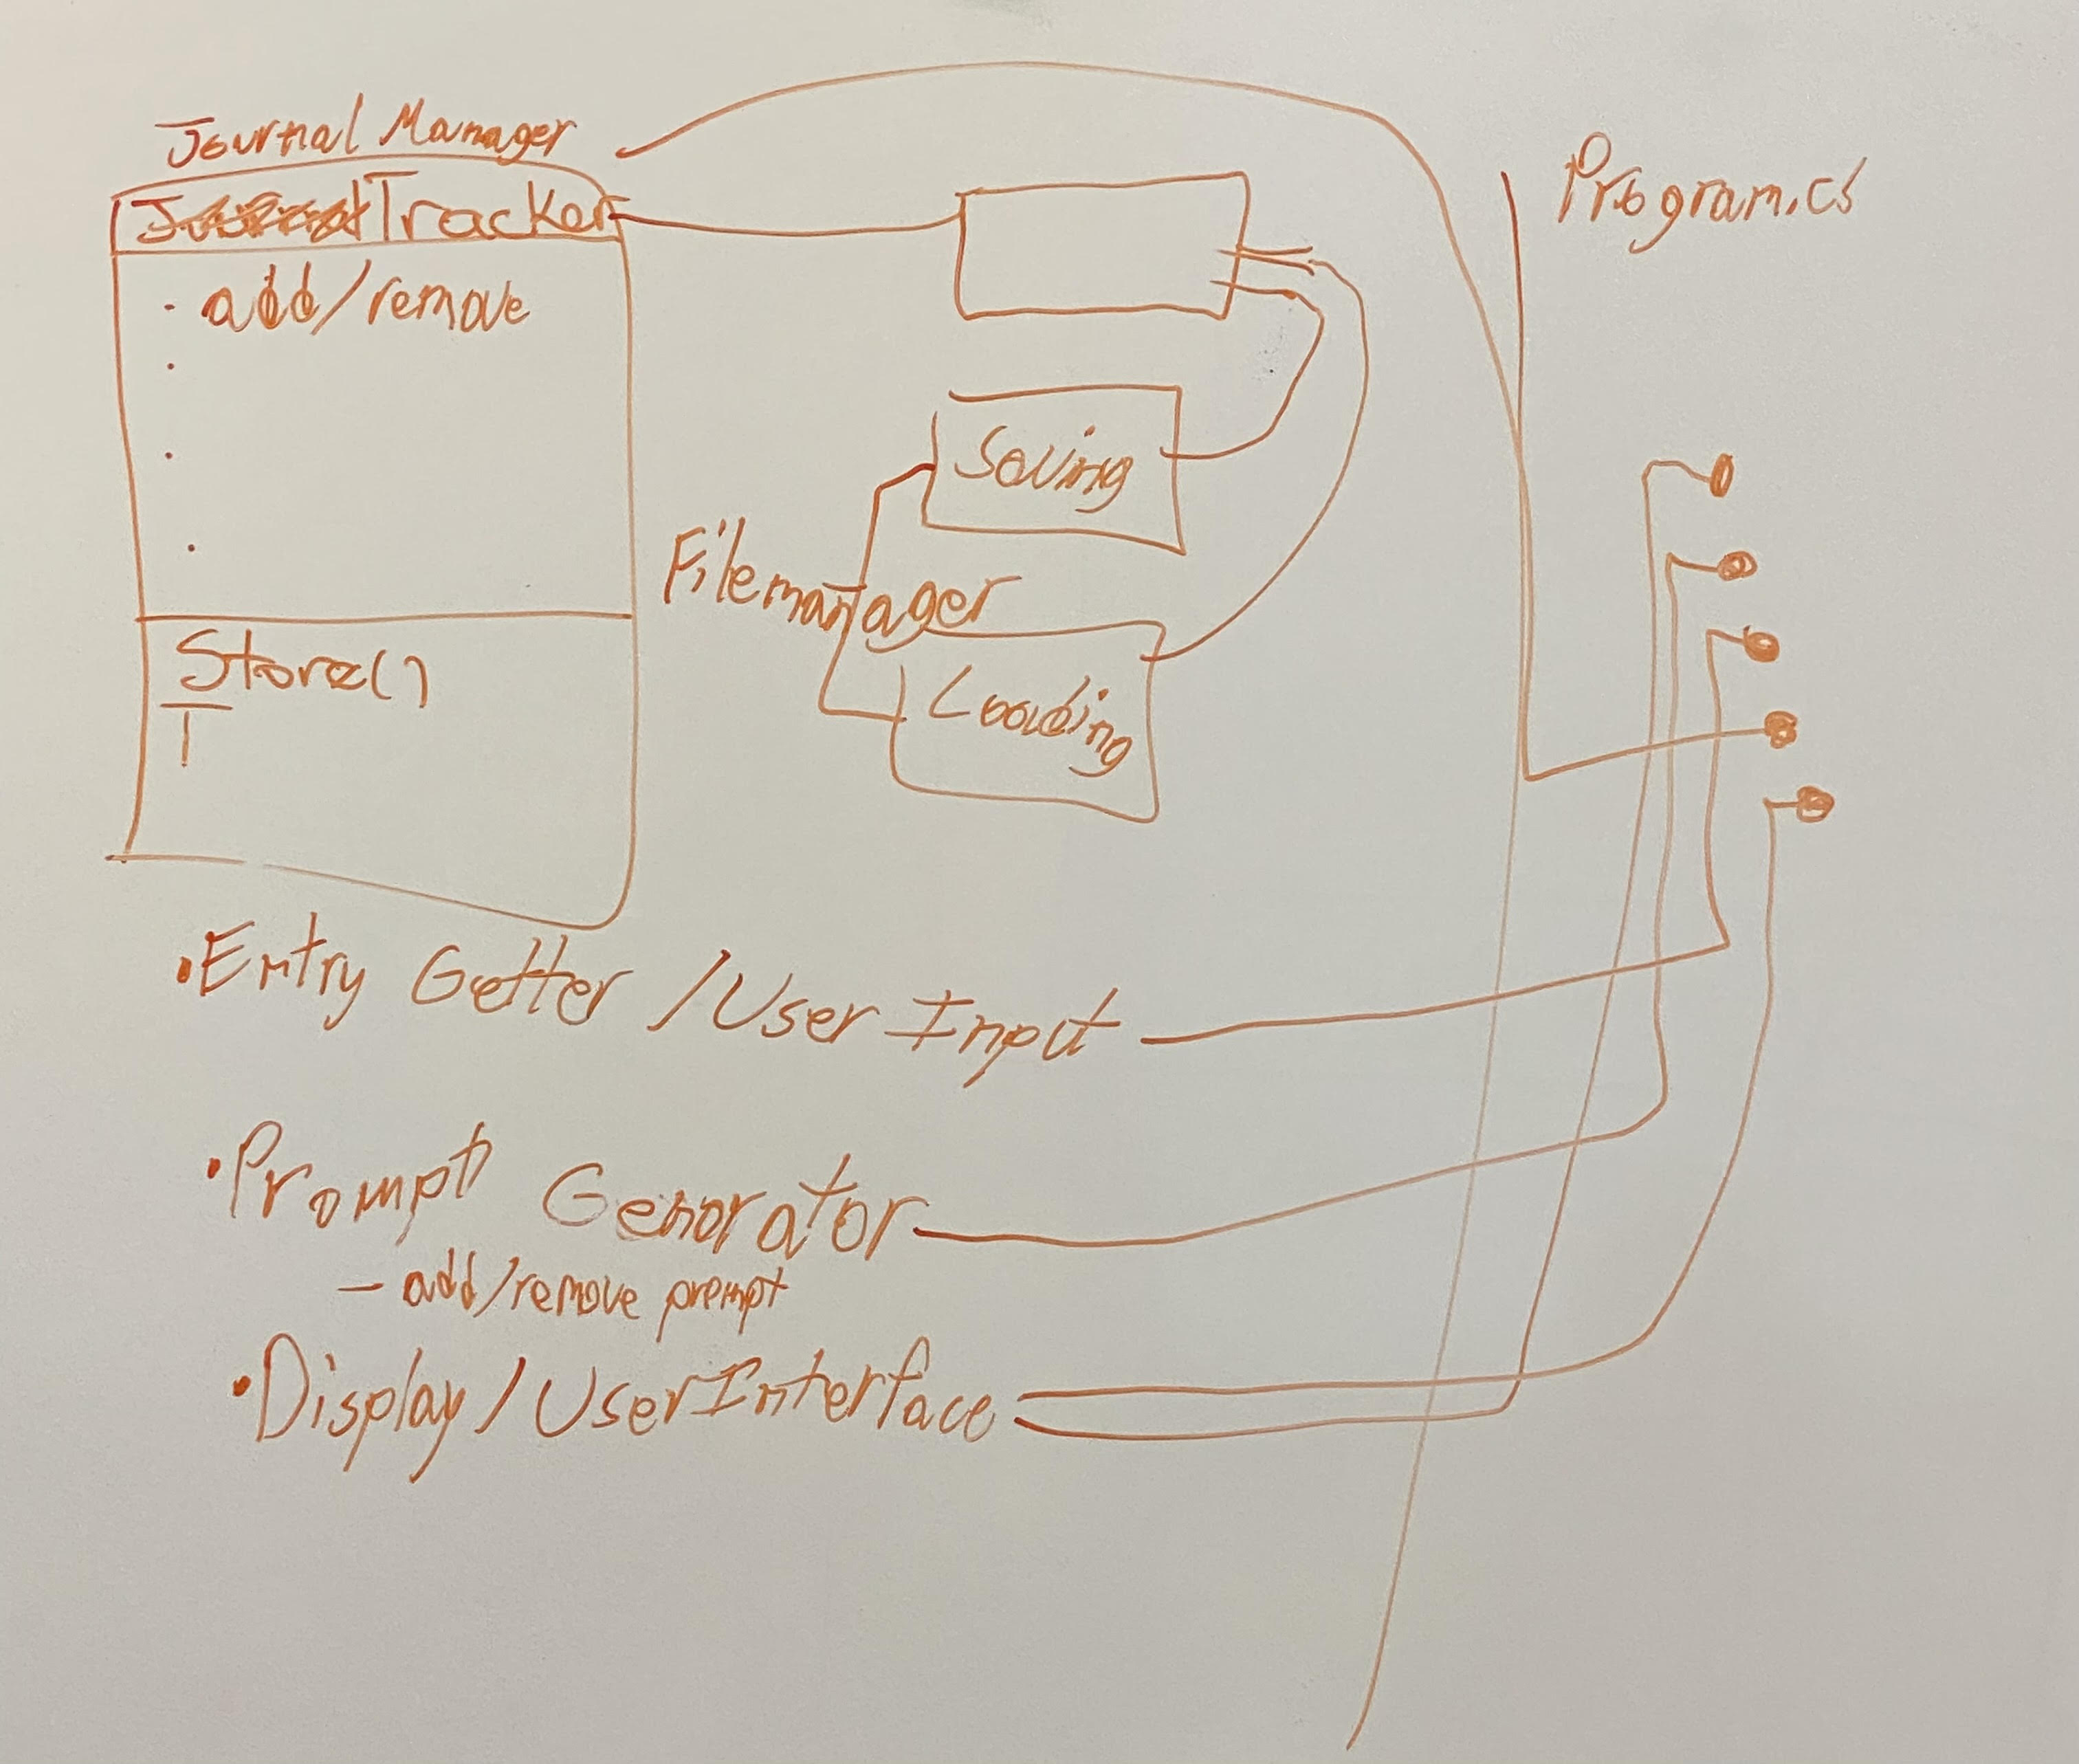 Journal Manager
Tracker
· add/remove
·
·
·
Store()
T
Program.cs
Saving
Filemanager
Loading
· Entry Getter / User Input
· Prompt Generator
— add/remove prompt
· Display / User Interface